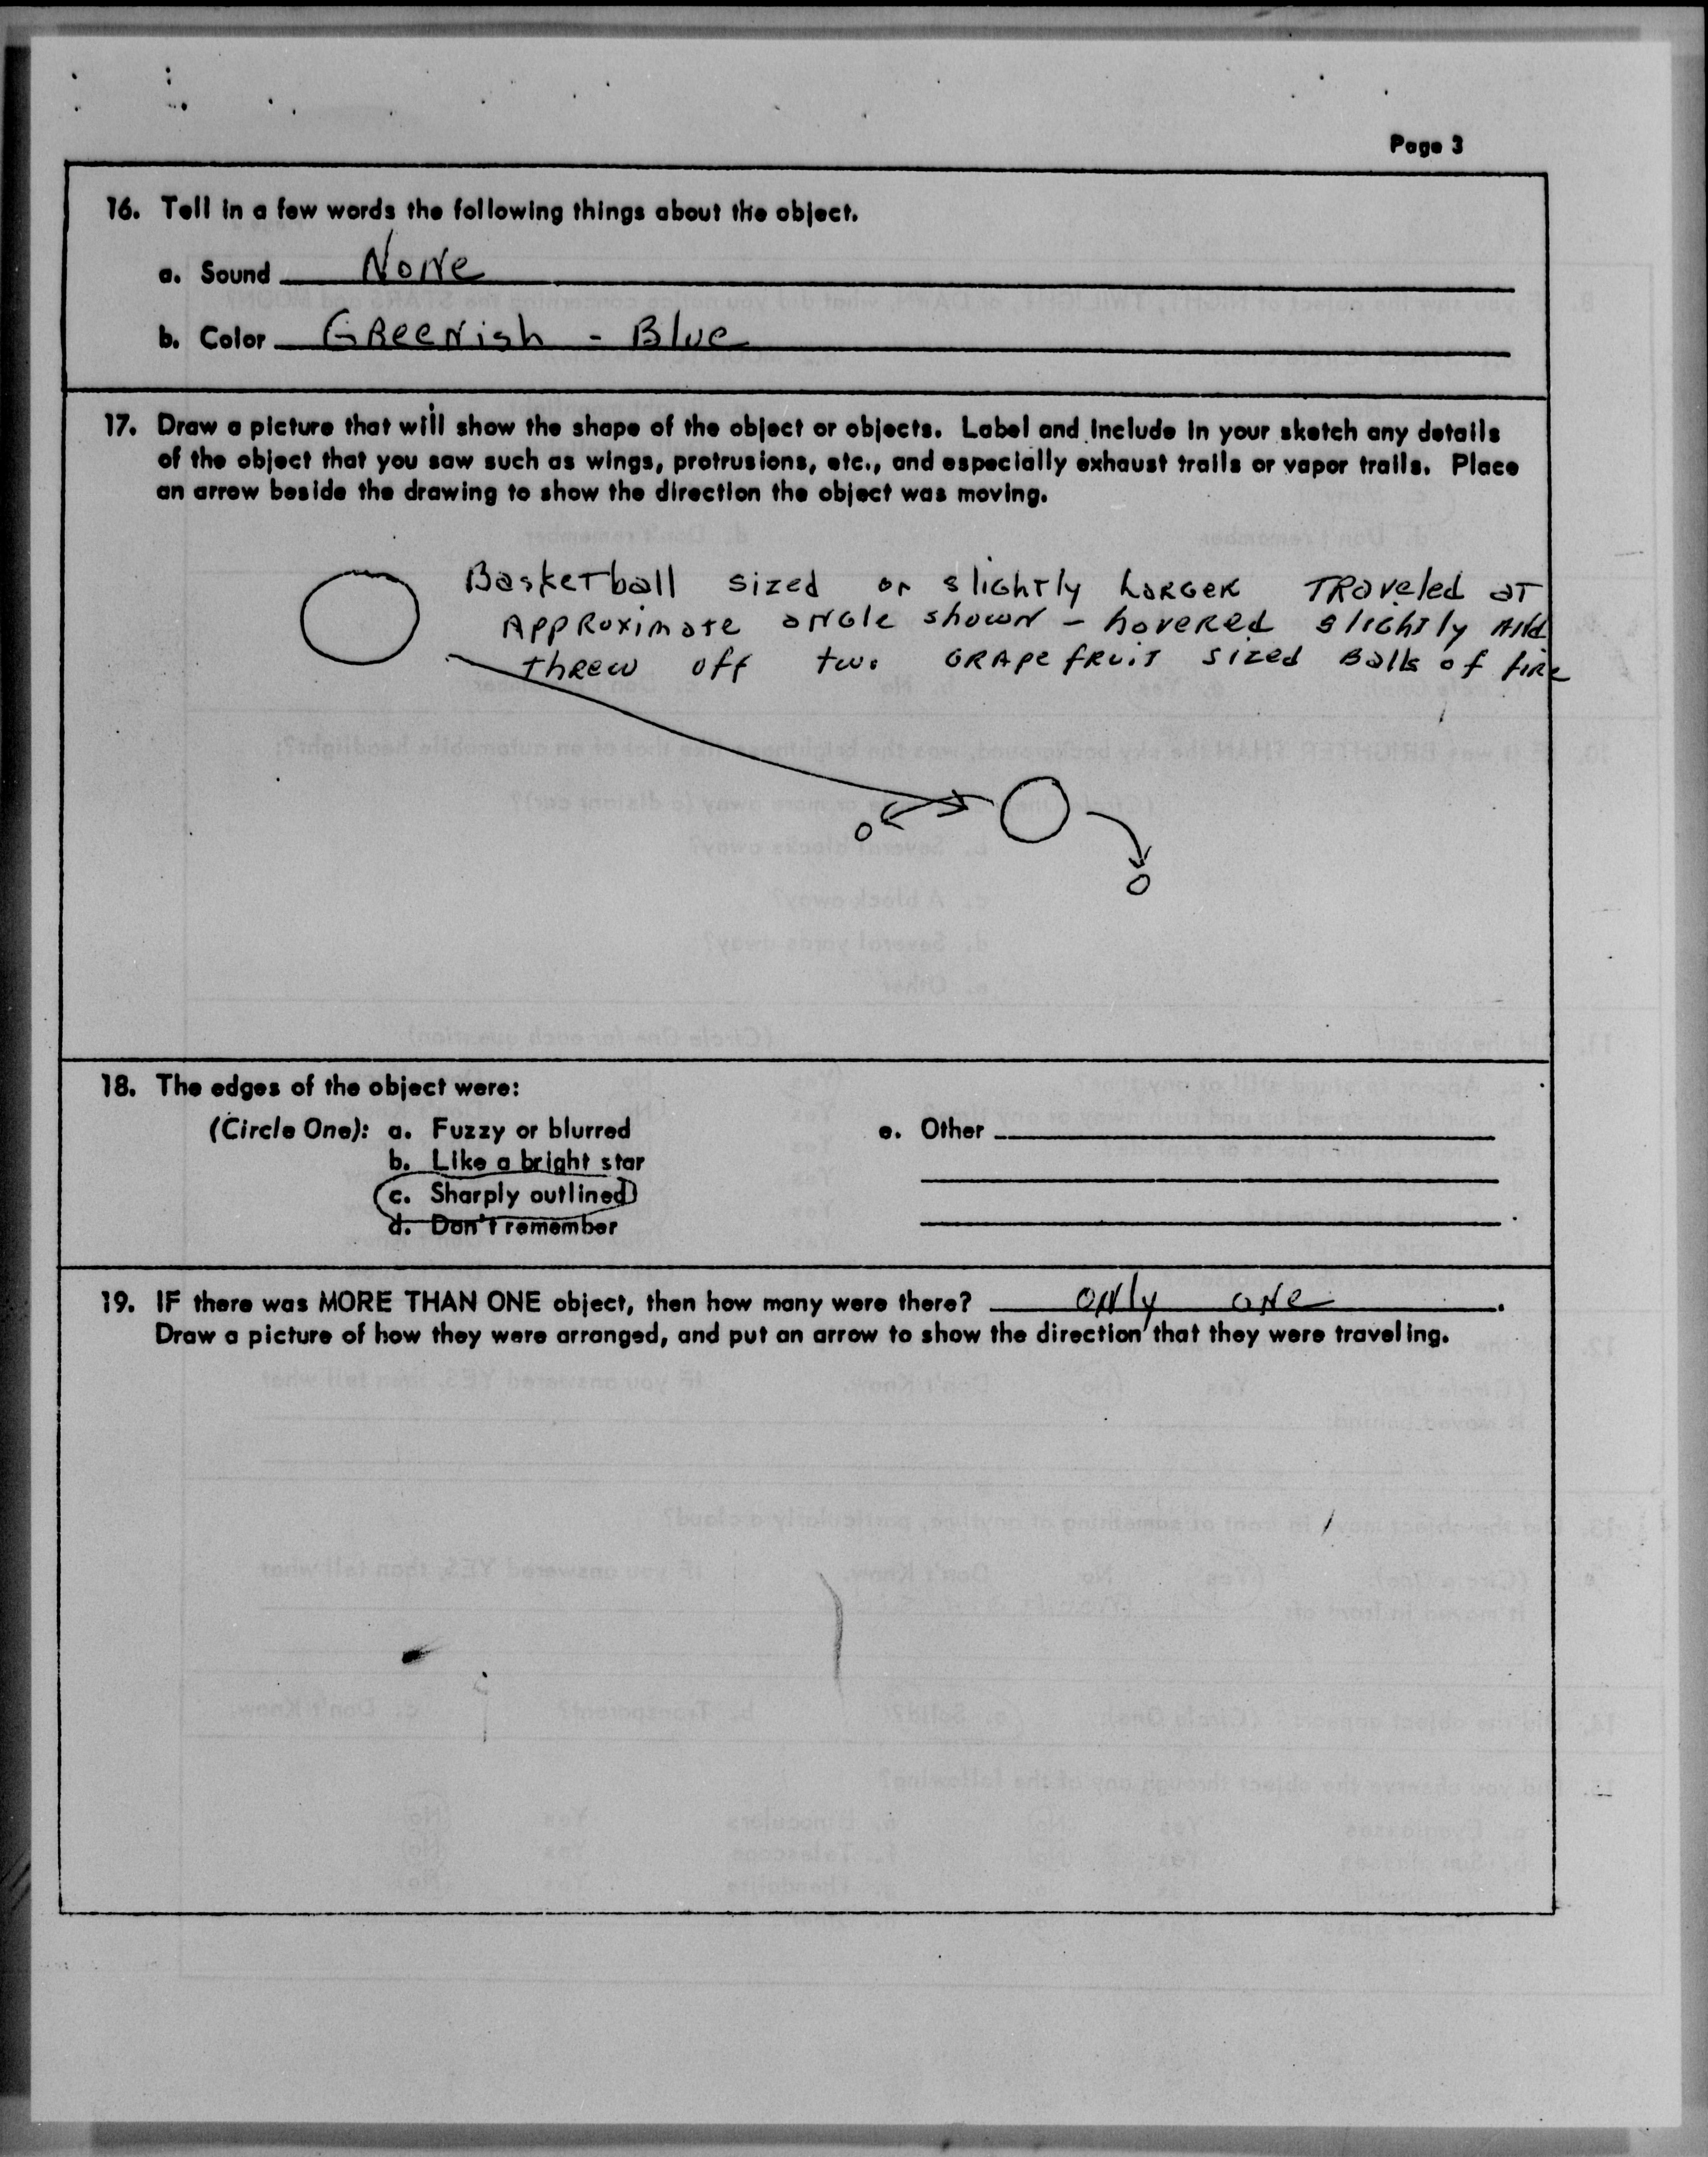 Page 3
16. Tell in a few words the following things about the object.
a. Sound None
b. Color Greenish - Blue
17. Draw a picture that will show the shape of the object or objects. Label and include in your sketch any details
of the object that you saw such as wings, protrusions, etc., and especially exhaust trails or vapor trails. Place
an arrow beside the drawing to show the direction the object was moving.
Basketball sized or slightly larger traveled at
approximate angle shown - hovered slightly and
threw off two grapefruit sized balls of fire
18. The edges of the object were:
(Circle One): a. Fuzzy or blurred e. Other
b. Like a bright star
c. Sharply outlined
d. Don't remember
19. IF there was MORE THAN ONE object, then how many were there? only one.
Draw a picture of how they were arranged, and put an arrow to show the direction that they were traveling.